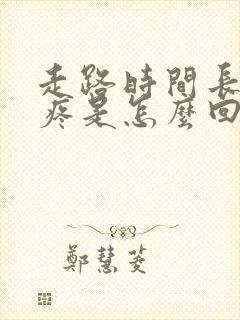 走路時間長
疼是怎麼回
鄭慧菱